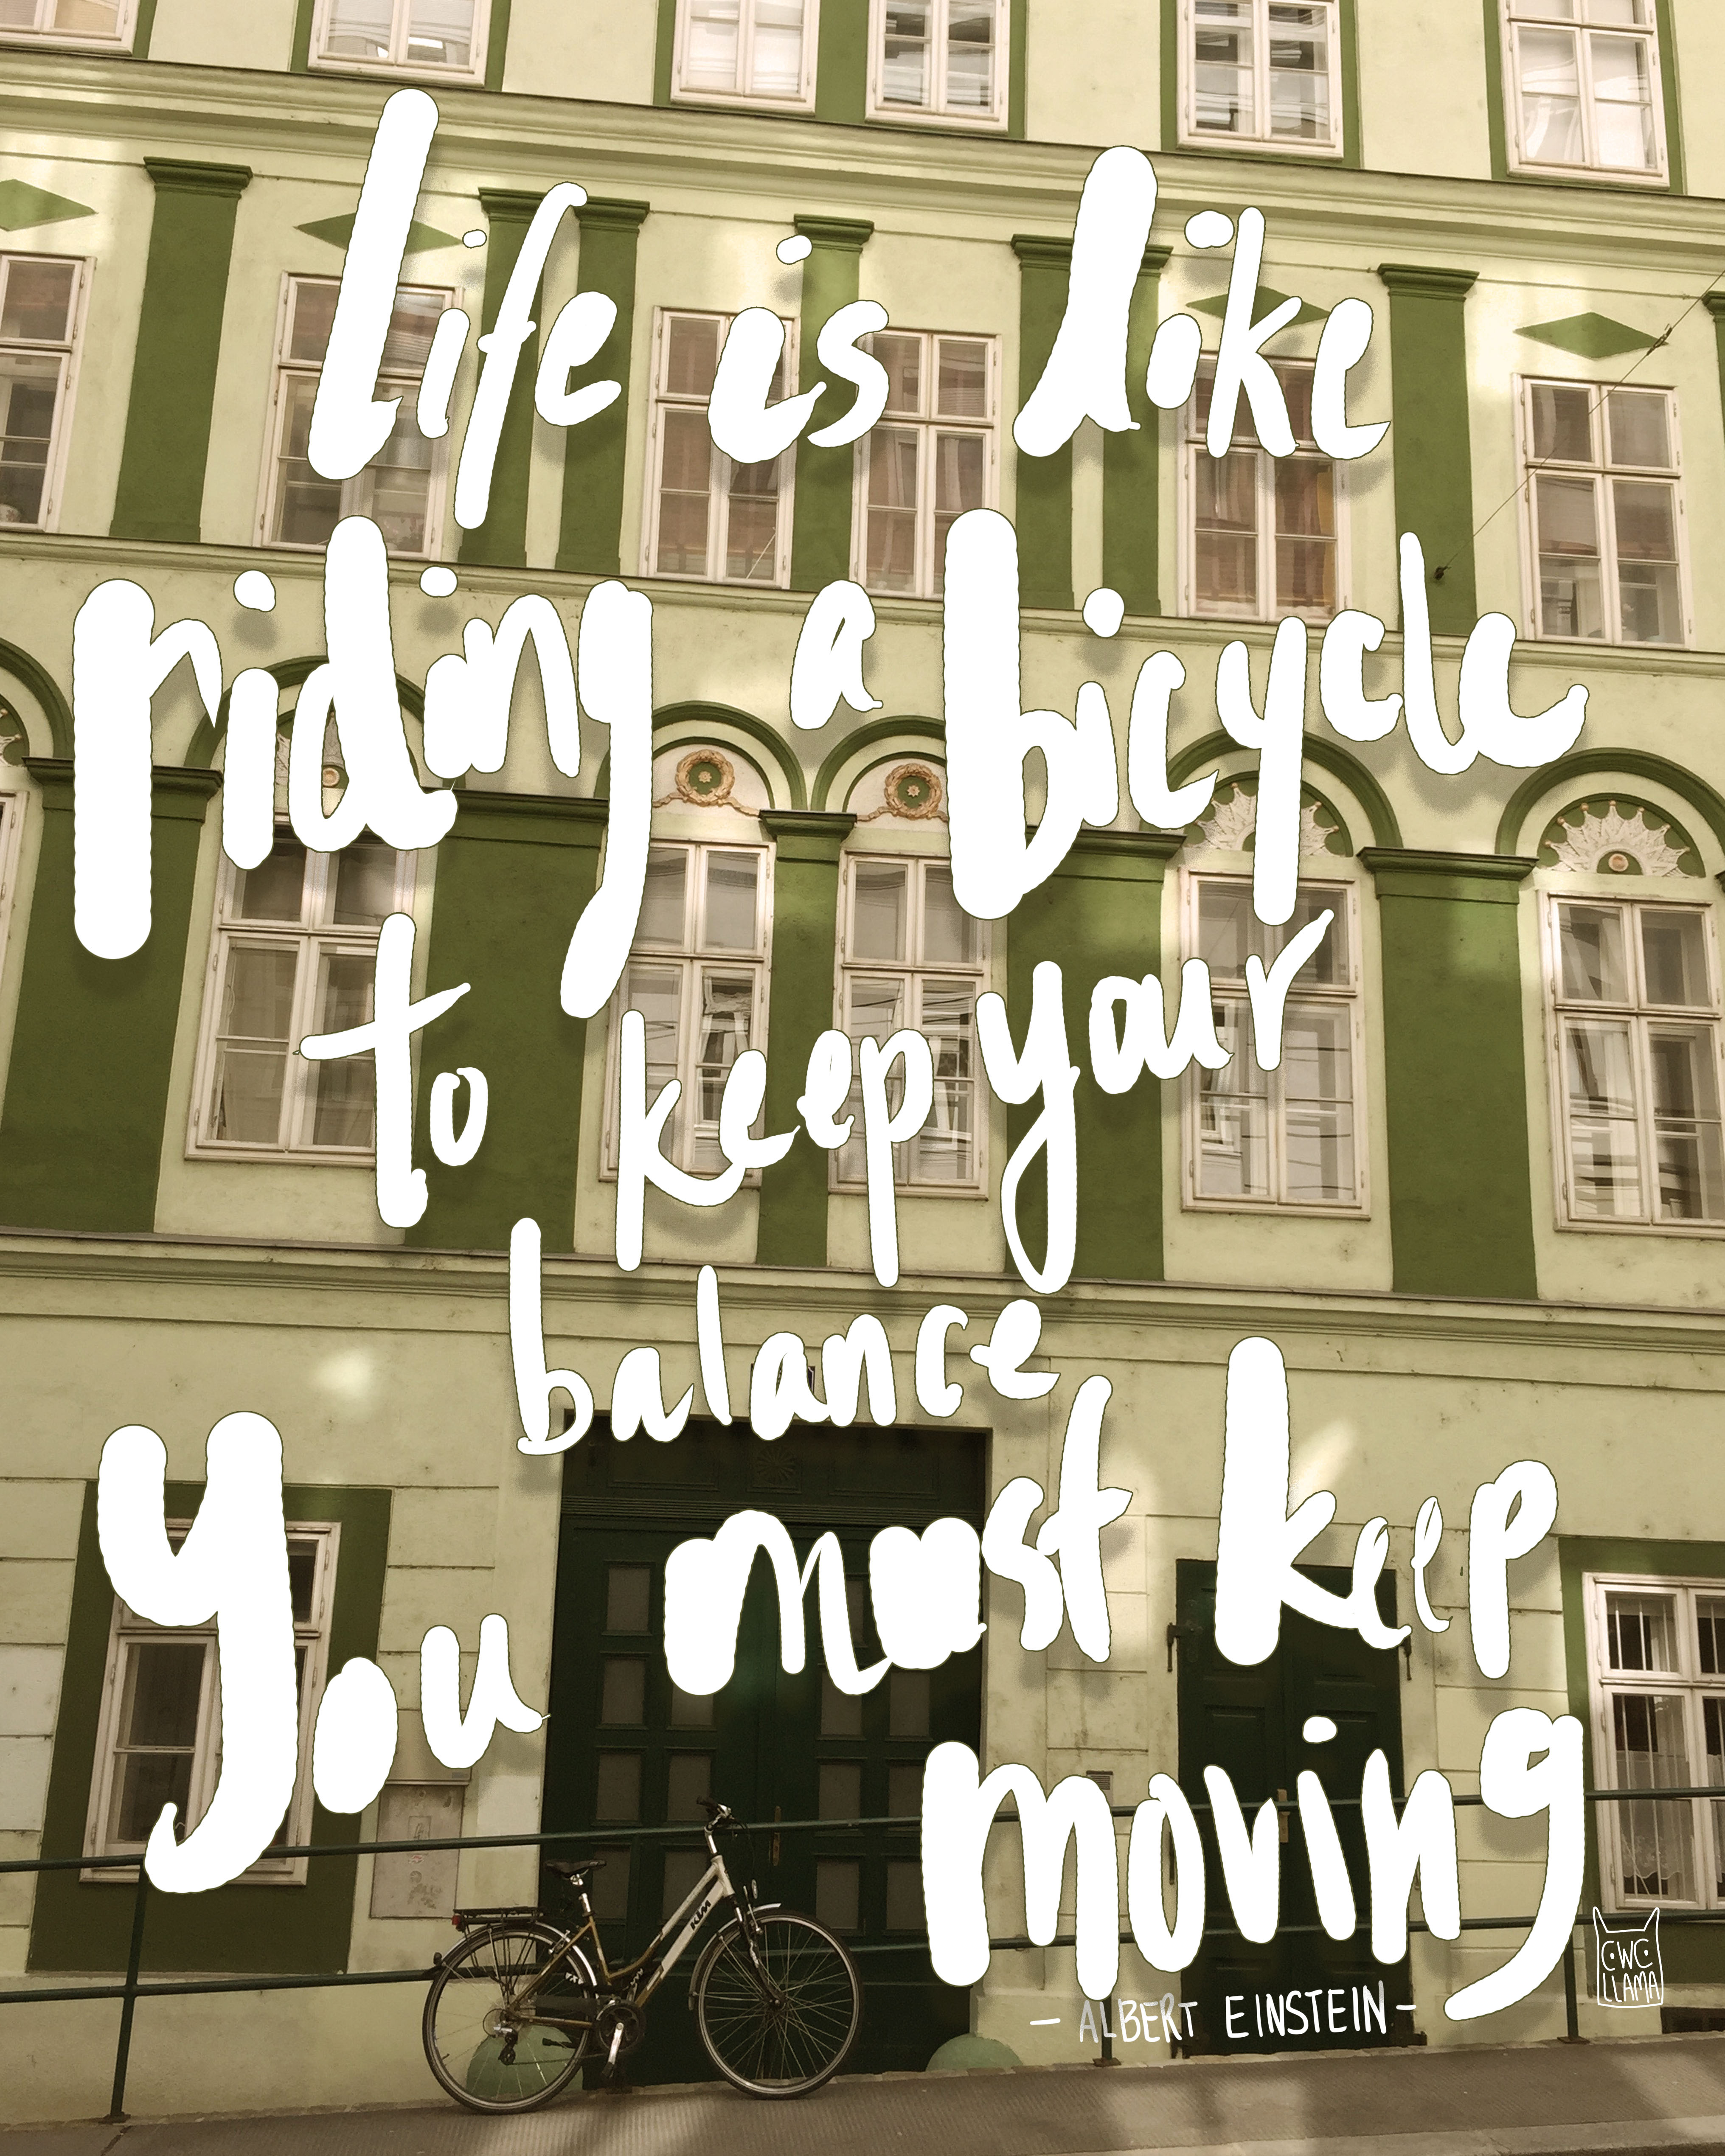 life is like
riding a bicycle
to keep your
balance
you must keep
moving
- ALBERT EINSTEIN -
CWC
LLAMA
KTM